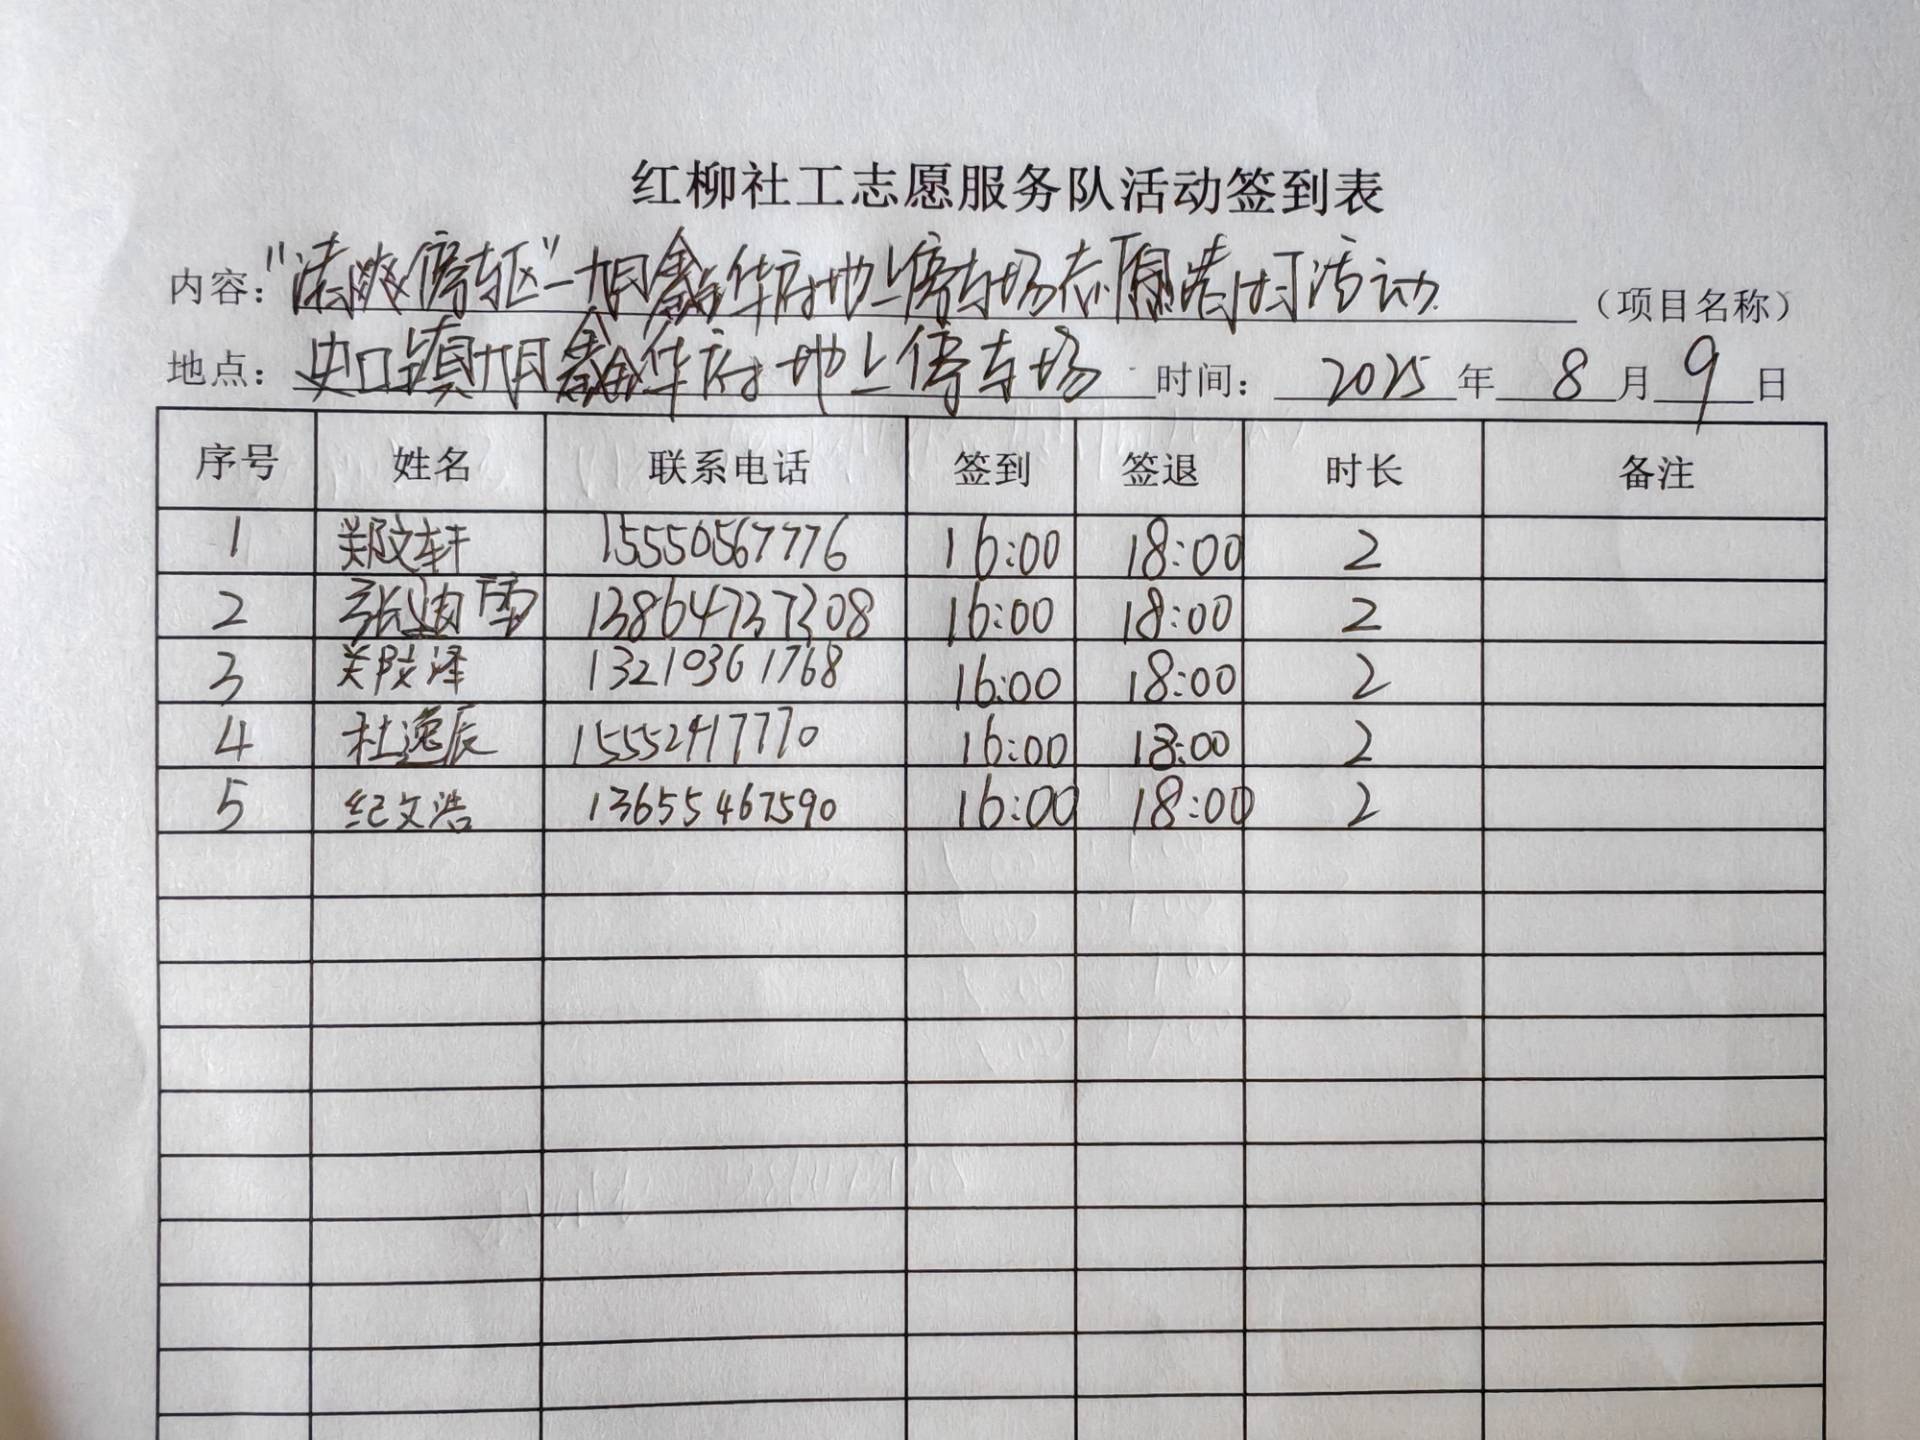 红柳社工志愿服务队活动签到表
内容："清爽停车区"—旭鑫华府地上停车场志愿清扫活动（项目名称）
地点：史口镇旭鑫华府地上停车场 时间：2025年8月9日
序号 姓名 联系电话 签到 签退 时长 备注
1 郑文轩 15550567776 16:00 18:00 2
2 张雨 13864737308 16:00 18:00 2
3 郑泽 13210361768 16:00 18:00 2
4 杜逸辰 15552417770 16:00 18:00 2
5 纪文浩 13655467590 16:00 18:00 2